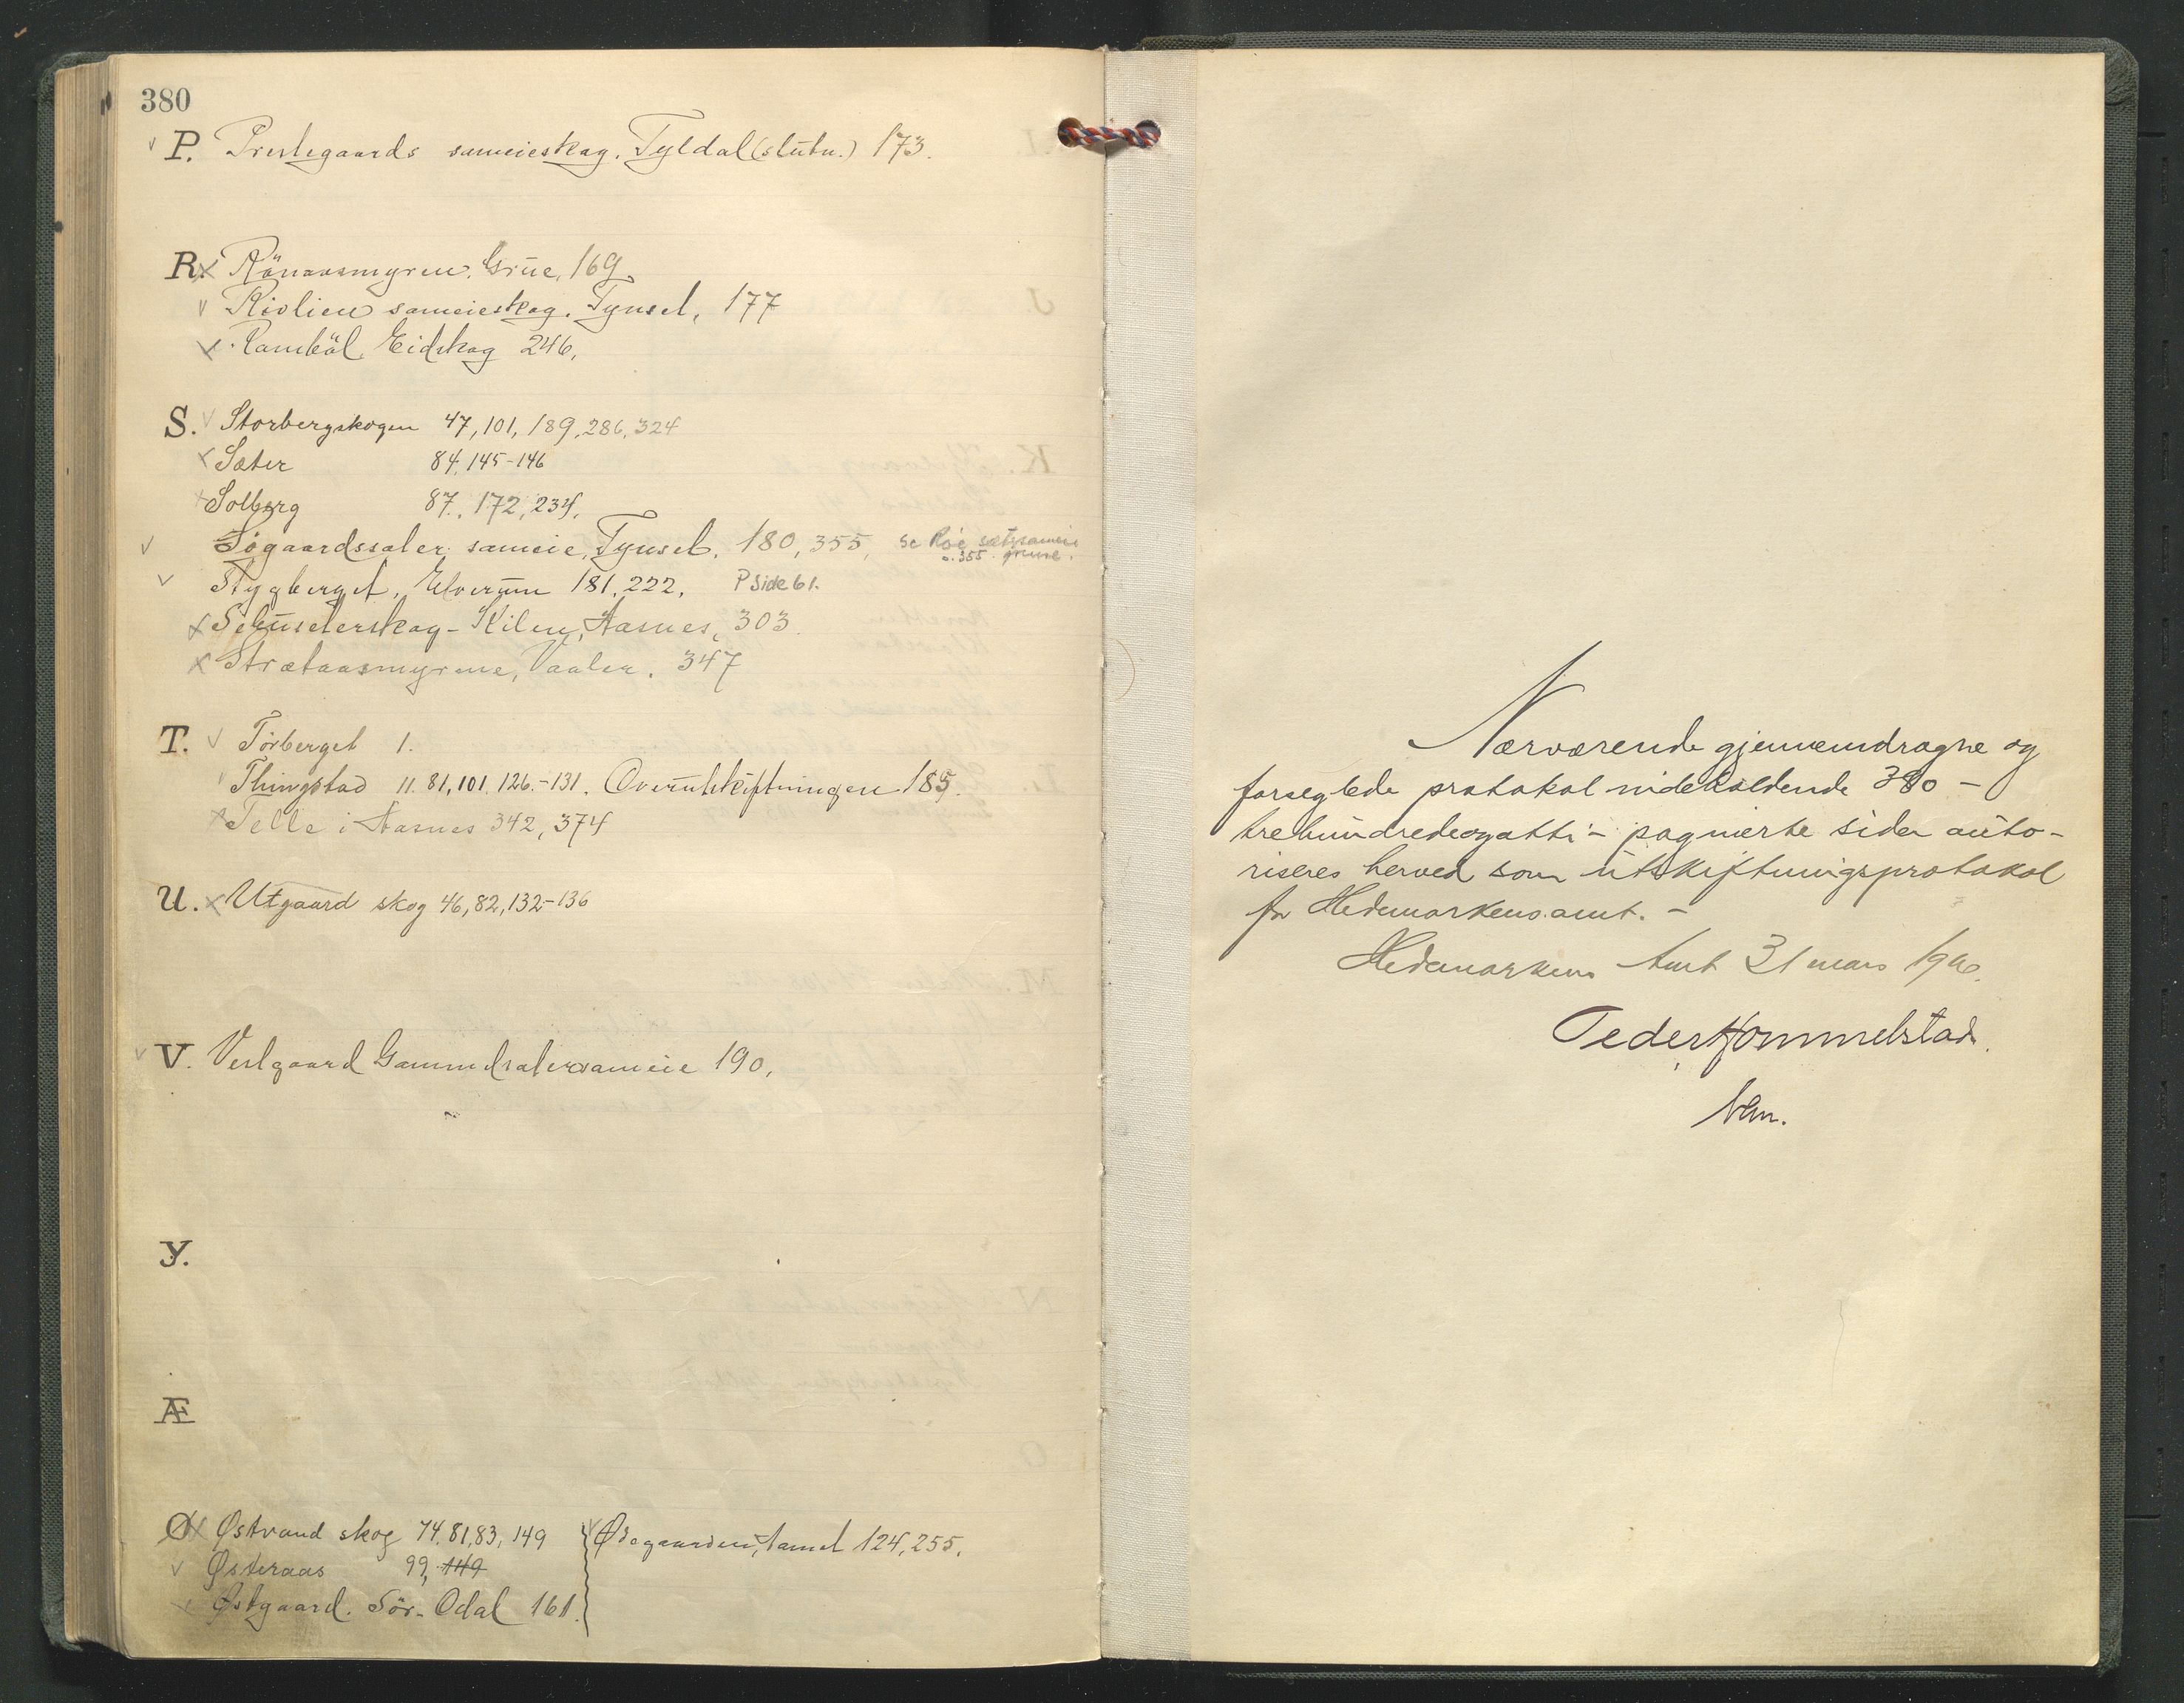 380
P. Prestegaards sameieskog. Tyldal (slutn.) 173.
R. Rönaasmyren. Grue, 169.
Rivlien sameieskog. Tynset, 177
Ramböl Eidskog 246.
S. Storbergskogen 47, 101, 189, 286, 324
Sæter 84, 145-146
Solberg 87., 172, 234.
Søgaardssæter sameie, Tynset. 180, 355, se Röe sætersameie
s. 355
Stygberget, Elverum 181, 222. P Side 61.
Kilen, Aasnes, 303
Strætaasmyrene, Vaaler. 347
T. Törberget 1.
Thingstad 11. 81, 101, 126.-131. Overutskiftningen 185.
Telle i Aasnes 342, 374
U. Utgaard skog 46, 82, 132-136
V. Vestgaard Gammelsætersameie 190,
Y.
Æ
Ø Østvand skog 74, 81, 83, 149
Østeraas 99, 149
Østgaard. Sör-Odal 161.
Ødegaarden, 124, 255.
Nærværende gjennemdragne og
forseglede protokol indeholdende 380 -
trehundredeogotti - paginerte sider auto-
riseres herved som utskiftningsprotokol
for Hedemarkens amt. -
Hedemarkens Amt 31 mars 1906.
Peder Hommelstad.